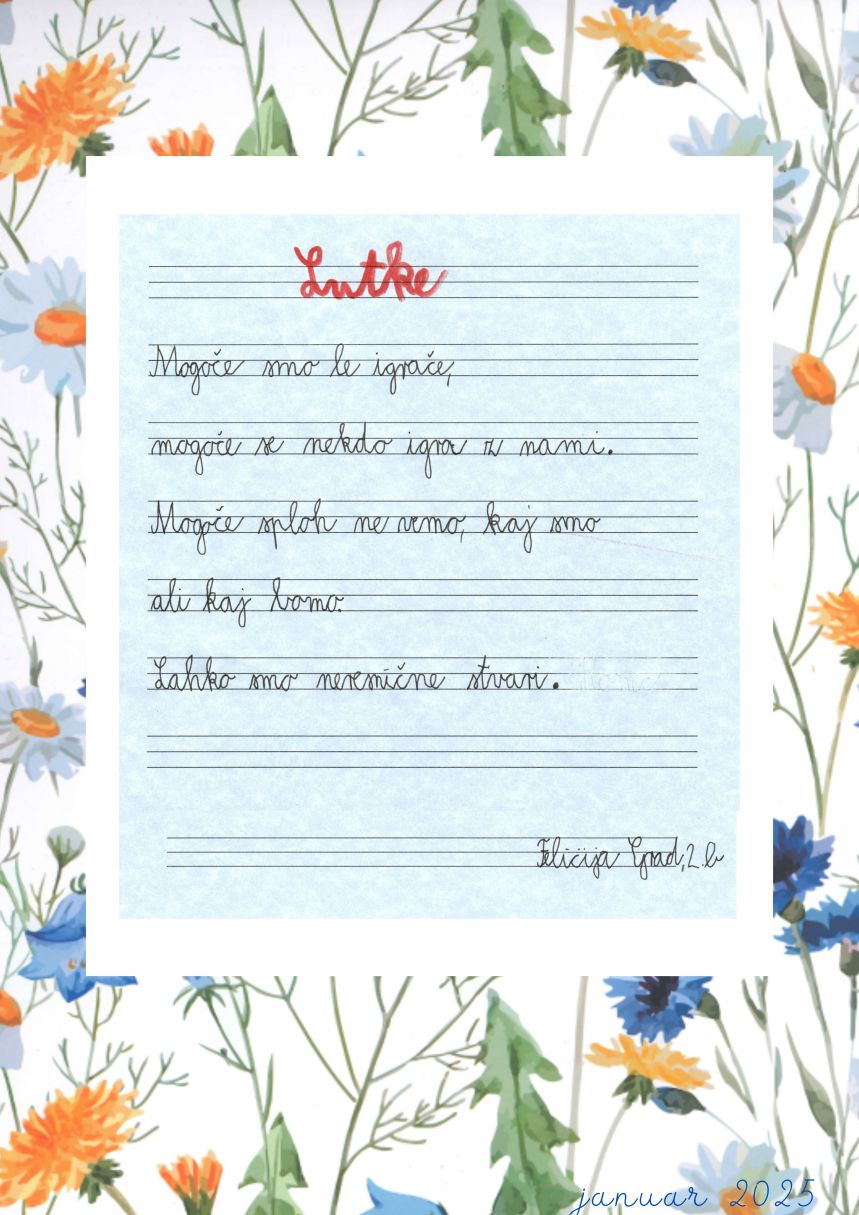 Lutke
Mogoče smo le igrače,
mogoče se nekdo igra z nami.
Mogoče sploh ne vemo, kaj smo
ali kaj bomo.
Lahko smo neresnične stvari.
Felicija Grad, 2. b
januar 2025